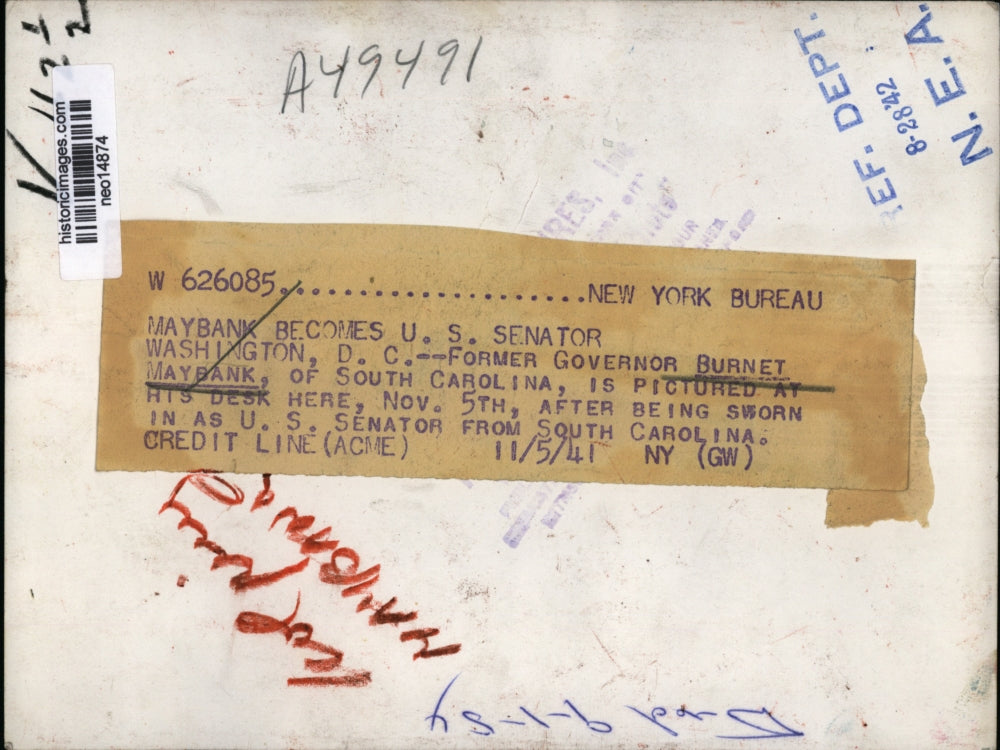 K 112 1/2
historicimages.com
neo14874
A49491
REF. DEPT.
8-28'42
N. E. A.
W 626085......................NEW YORK BUREAU
MAYBANK BECOMES U. S. SENATOR
WASHINGTON, D. C.--FORMER GOVERNOR BURNET
MAYBANK, OF SOUTH CAROLINA, IS PICTURED AT
HIS DESK HERE, NOV. 5TH, AFTER BEING SWORN
IN AS U. S. SENATOR FROM SOUTH CAROLINA.
CREDIT LINE (ACME) 11/5/41 NY (GW)
MAYBANK
Died 9-1-54